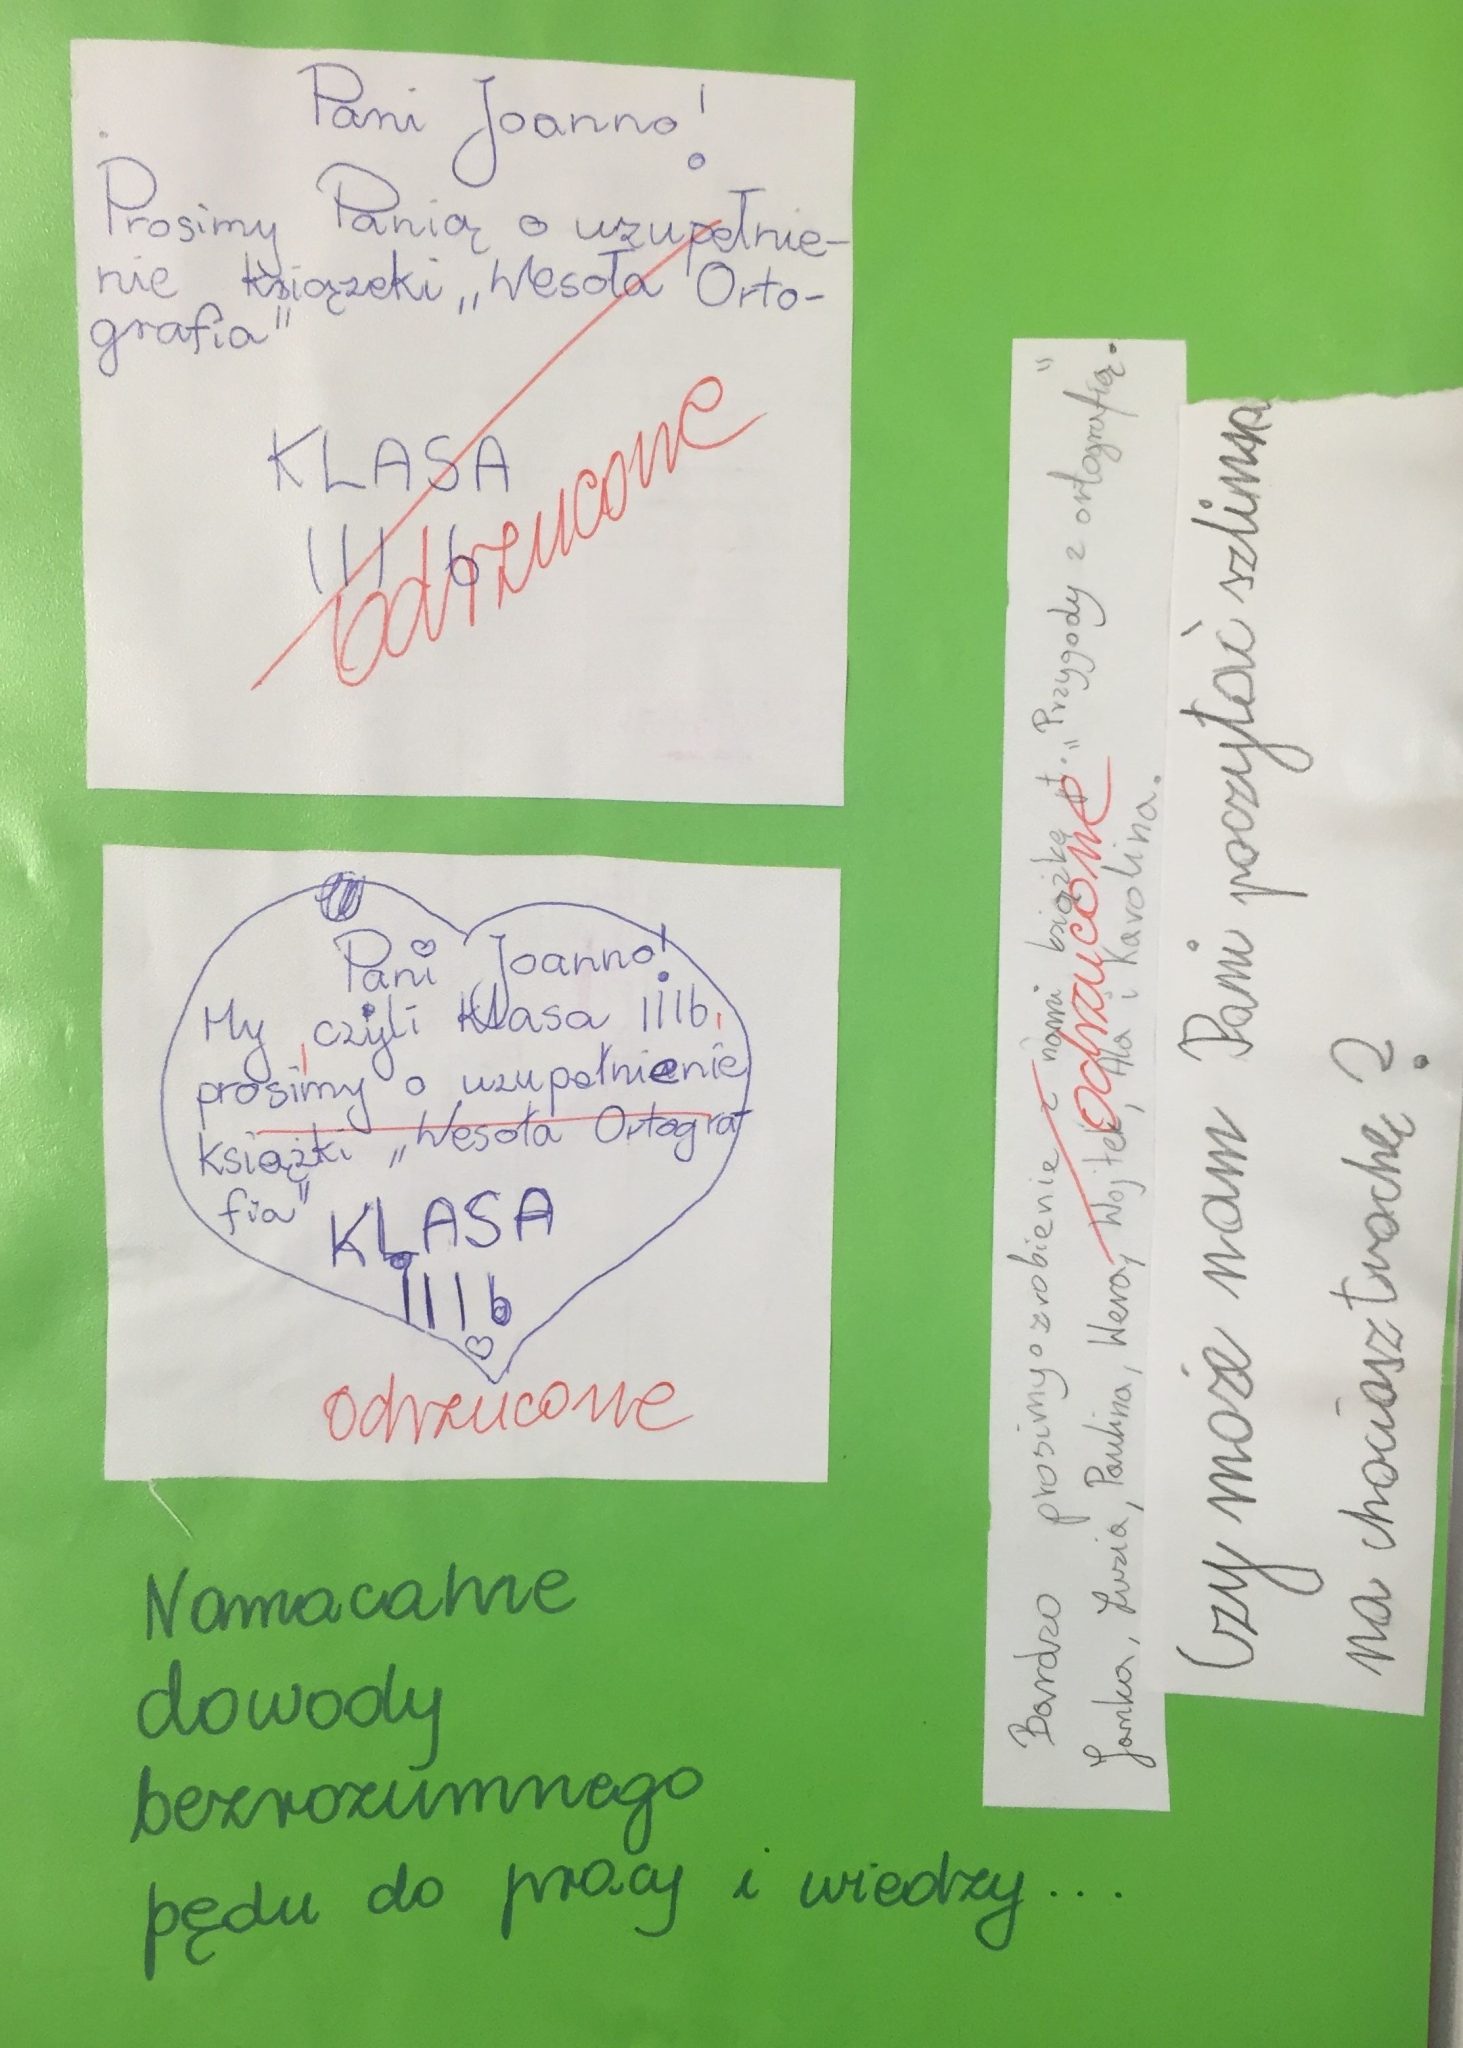 Pani Joanno!
Prosimy Panią o uzupełnie-
nie książeki „Wesoła Orto-
grafia"
KLASA
III b
odrzucone
Pani Joanno!
My, czyli klasa IIIb,
prosimy o uzupełnienie
książki „Wesoła Ortograf
fia"
KLASA
IIIb
odrzucone
Namacalne
dowody
bezrozumnego
pędu do pracy i wiedzy...
Bardzo prosimy o zrobienie z nami książką pt. „Przygody z ortografią".
Janka, Luzia, Paulina, Wera, Wojtek, Ala i Karolina.
odrzucone
Czy może nam Pani poczytać szlima
na chociasz trochę?